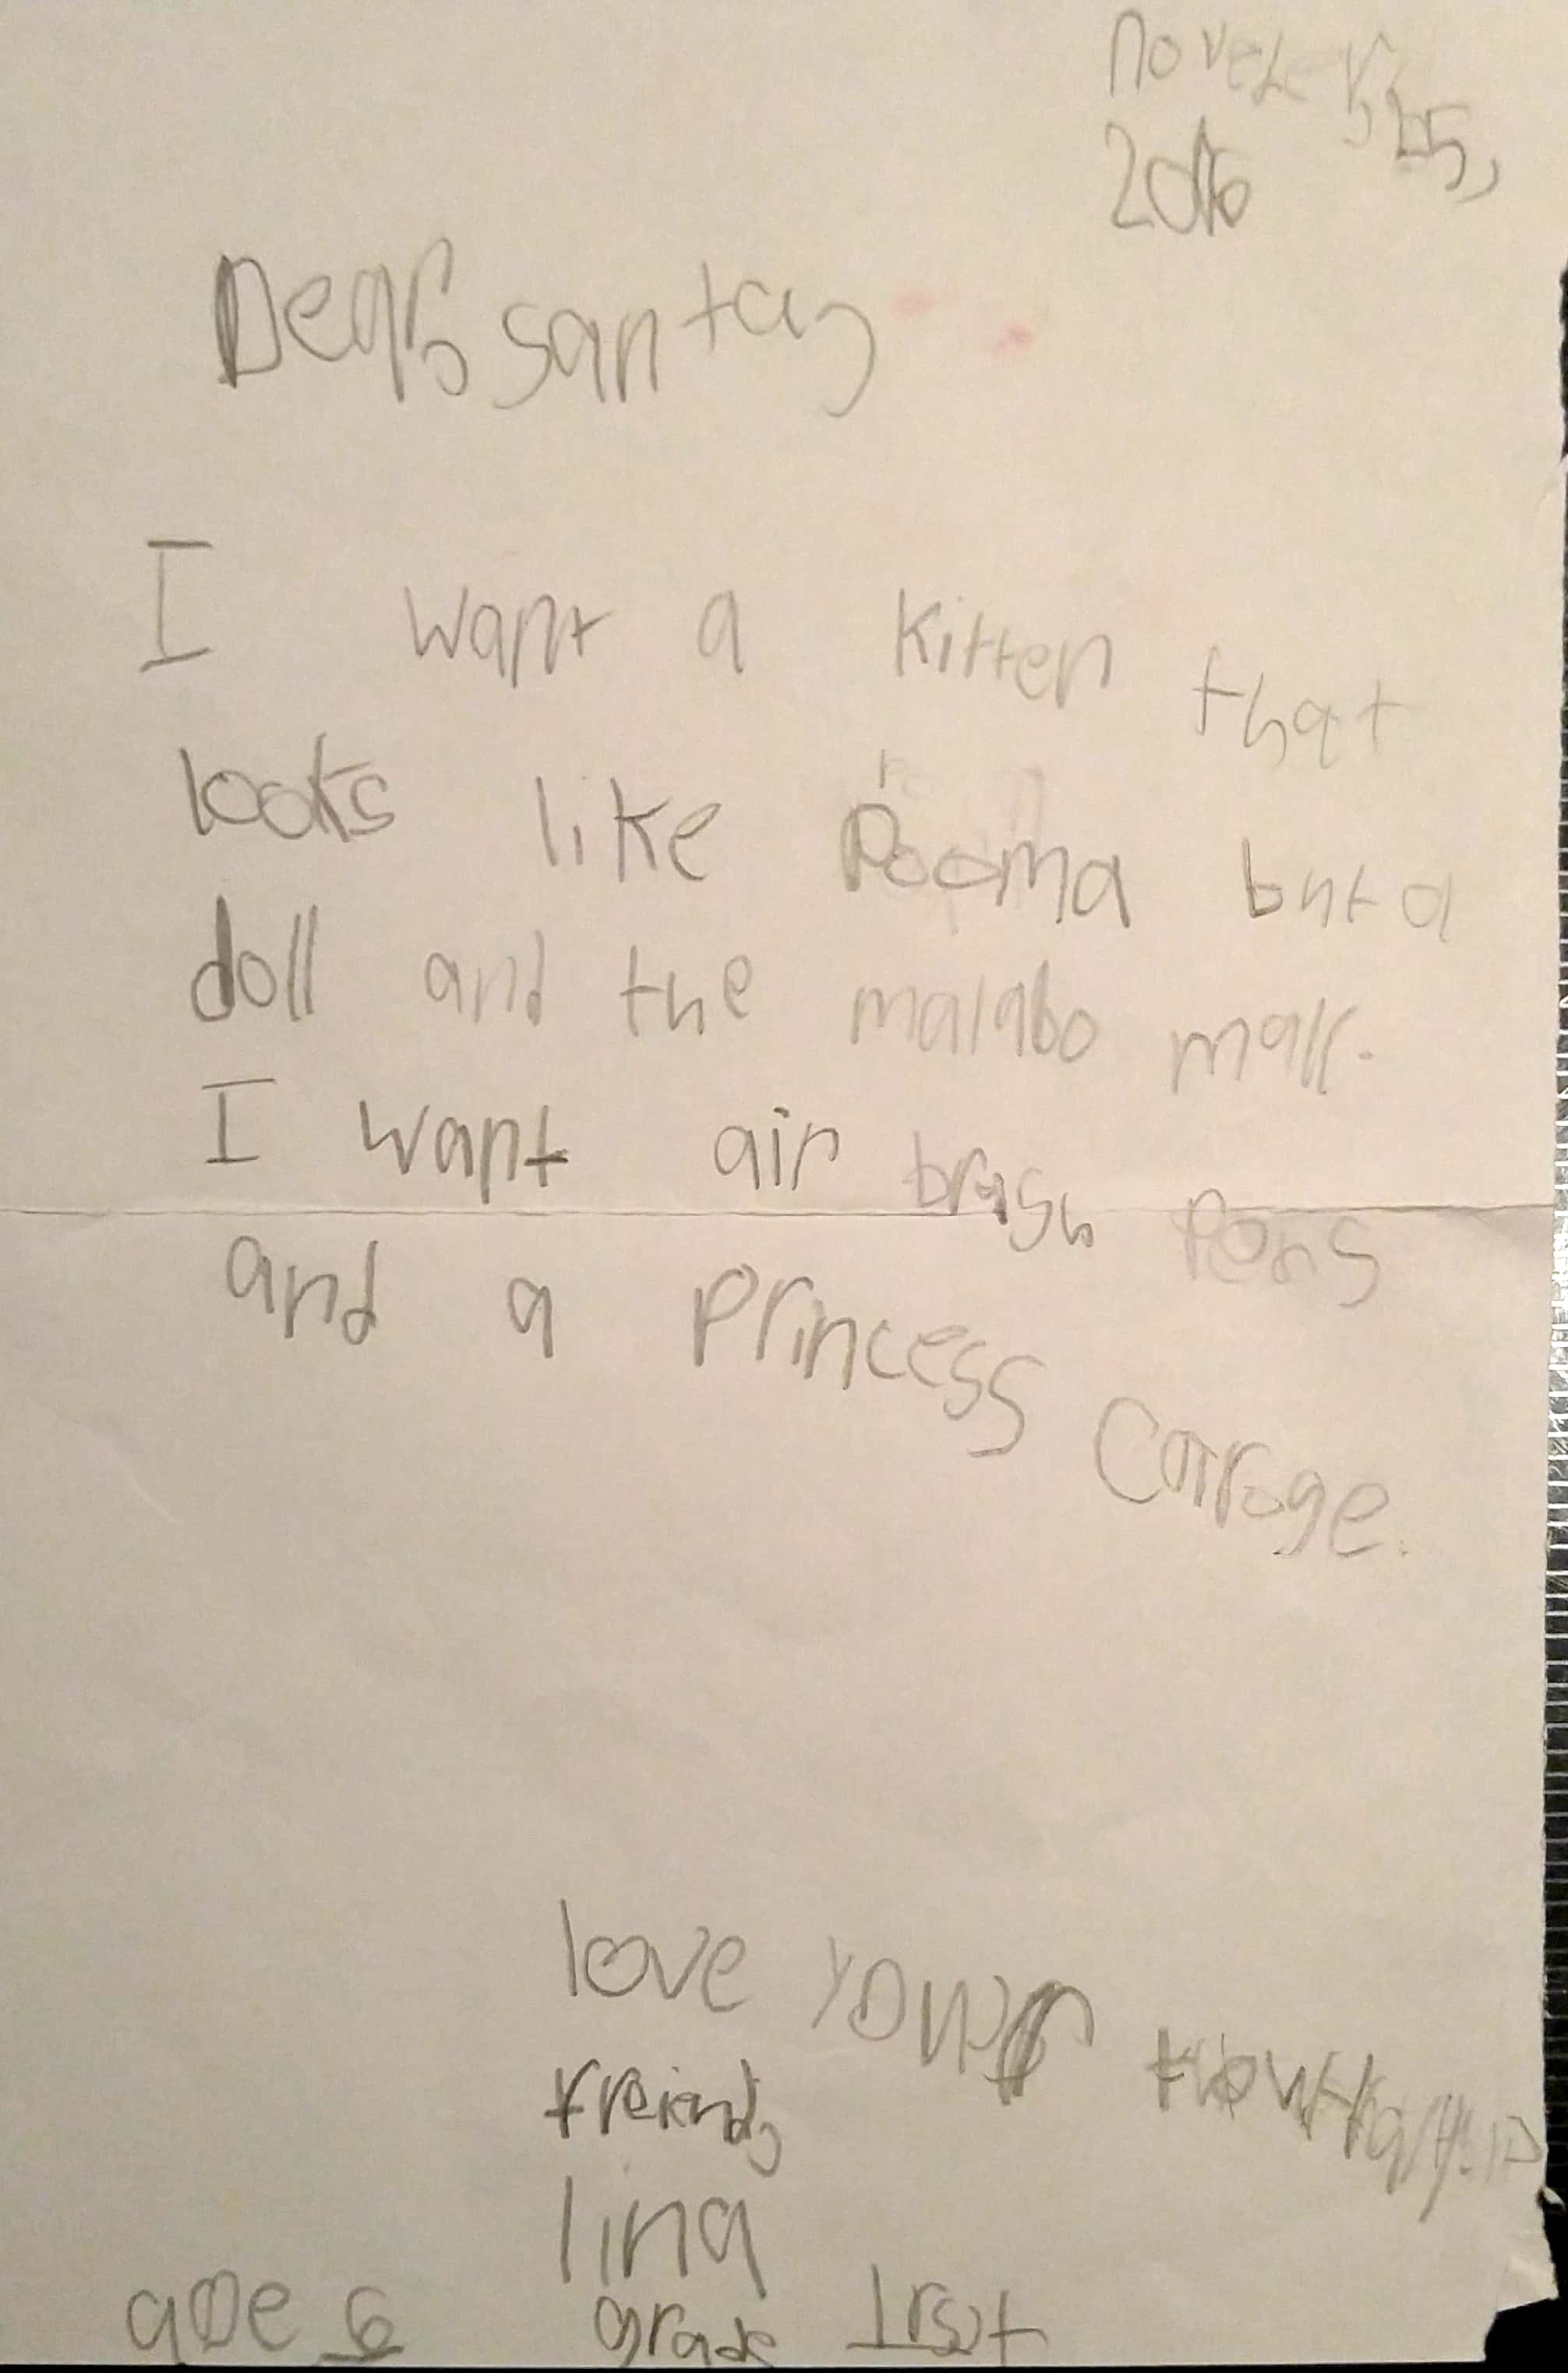 25,
2016
Dear, santa,
I want a kitten that
looks like Pooma but a
doll and the malabo mall.
I want air brash Pens
and a Princess Carroge.
love your
freind,
lina
age 6 grade 1rst